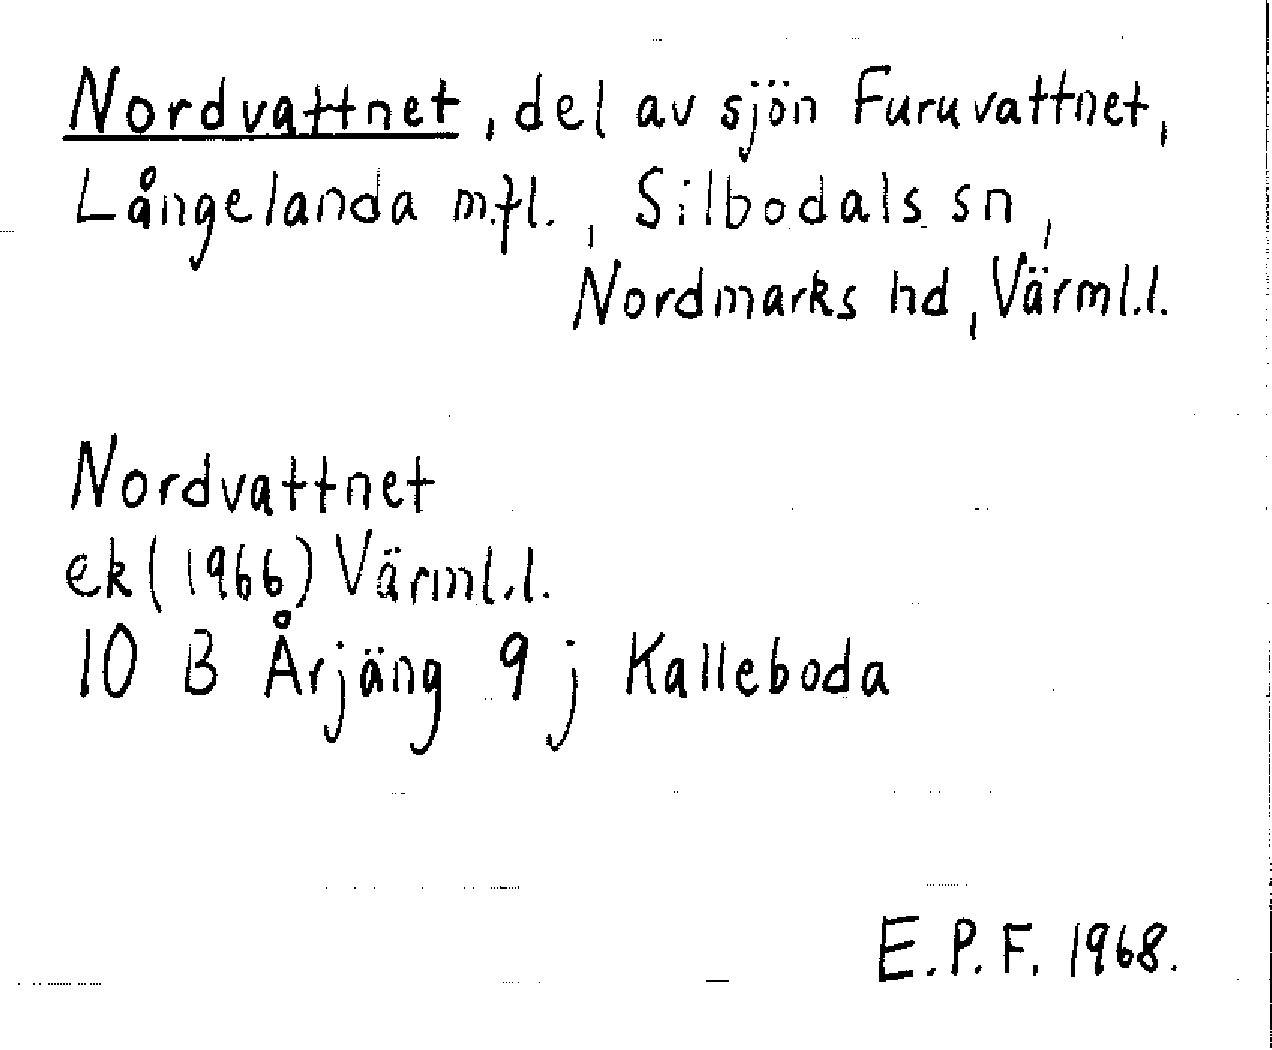 Nordvattnet, del av sjön Furuvattnet,
Långelanda m.fl., Silbodals sn,
Nordmarks hd, Värml.l.
Nordvattnet
ek (1966) Värml.l.
10 B Årjäng 9 j Kalleboda
E.P.F. 1968.